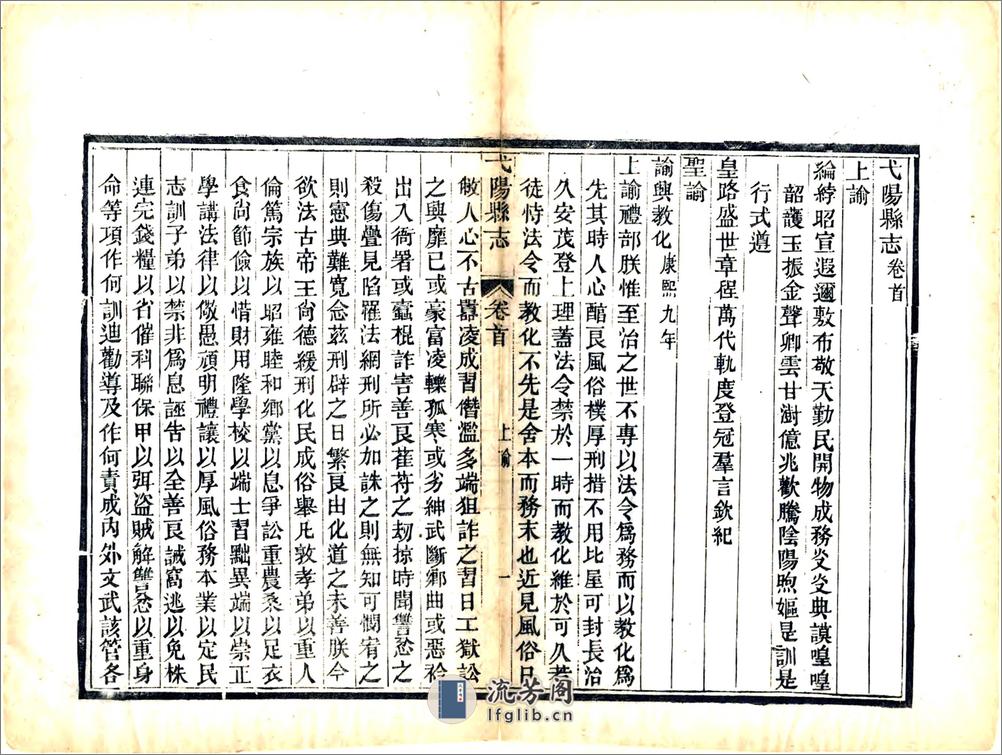 弋陽縣志卷首
上諭
綸綍昭宣遐邇敷布敬天勤民開物成務爻爻典謨喤喤
韶頀玉振金聲卿雲甘澍億兆歡騰陰陽煦嫗是訓是
行式遵
皇路盛世章程萬代軌度登冠羣言欽紀
聖諭
諭興教化康熙九年
上諭禮部朕惟至治之世不專以法令爲務而以教化爲
先其時人心醕良風俗樸厚刑措不用比屋可封長治
久安茂登上理蓋法令禁於一時而教化維於可久若
徒恃法令而教化不先是舍本而務末也近見風俗日
弋陽縣志 卷首 上諭 一
敝人心不古囂凌成習僭濫多端狙詐之習日工獄訟
之興靡已或豪富凌轢孤寒或劣紳武斷鄉曲或惡衿
出入衙署或蠹棍詐害善良萑苻之刼掠時聞讐忿之
殺傷疊見陷羅法網刑所必加誅之則無知可憫宥之
則憲典難寬念茲刑辟之日繁良由化道之未善朕今
欲法古帝王尚德緩刑化民成俗舉凡敦孝弟以重人
倫篤宗族以昭雍睦和鄉黨以息爭訟重農桑以足衣
食尚節儉以惜財用隆學校以端士習黜異端以崇正
學講法律以儆愚頑明禮讓以厚風俗務本業以定民
志訓子弟以禁非爲息誣告以全善良誡窩逃以免株
連完錢糧以省催科聯保甲以弭盗賊解讐忿以重身
命等項作何訓迪勸導及作何責成內外文武該管各
流芳阁
lfglib.cn